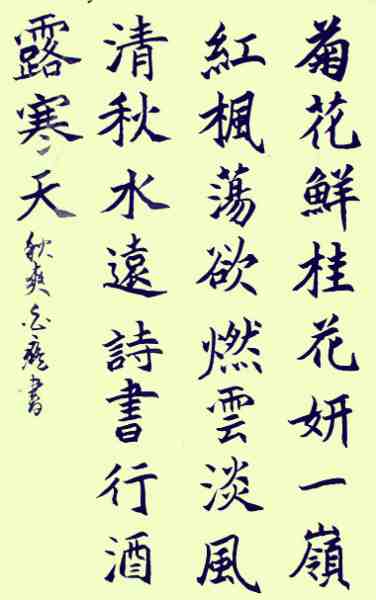 菊花鮮桂花妍一嶺
紅楓蕩欲燃雲淡風
清秋水遠詩書行酒
露寒天
秋爽 書